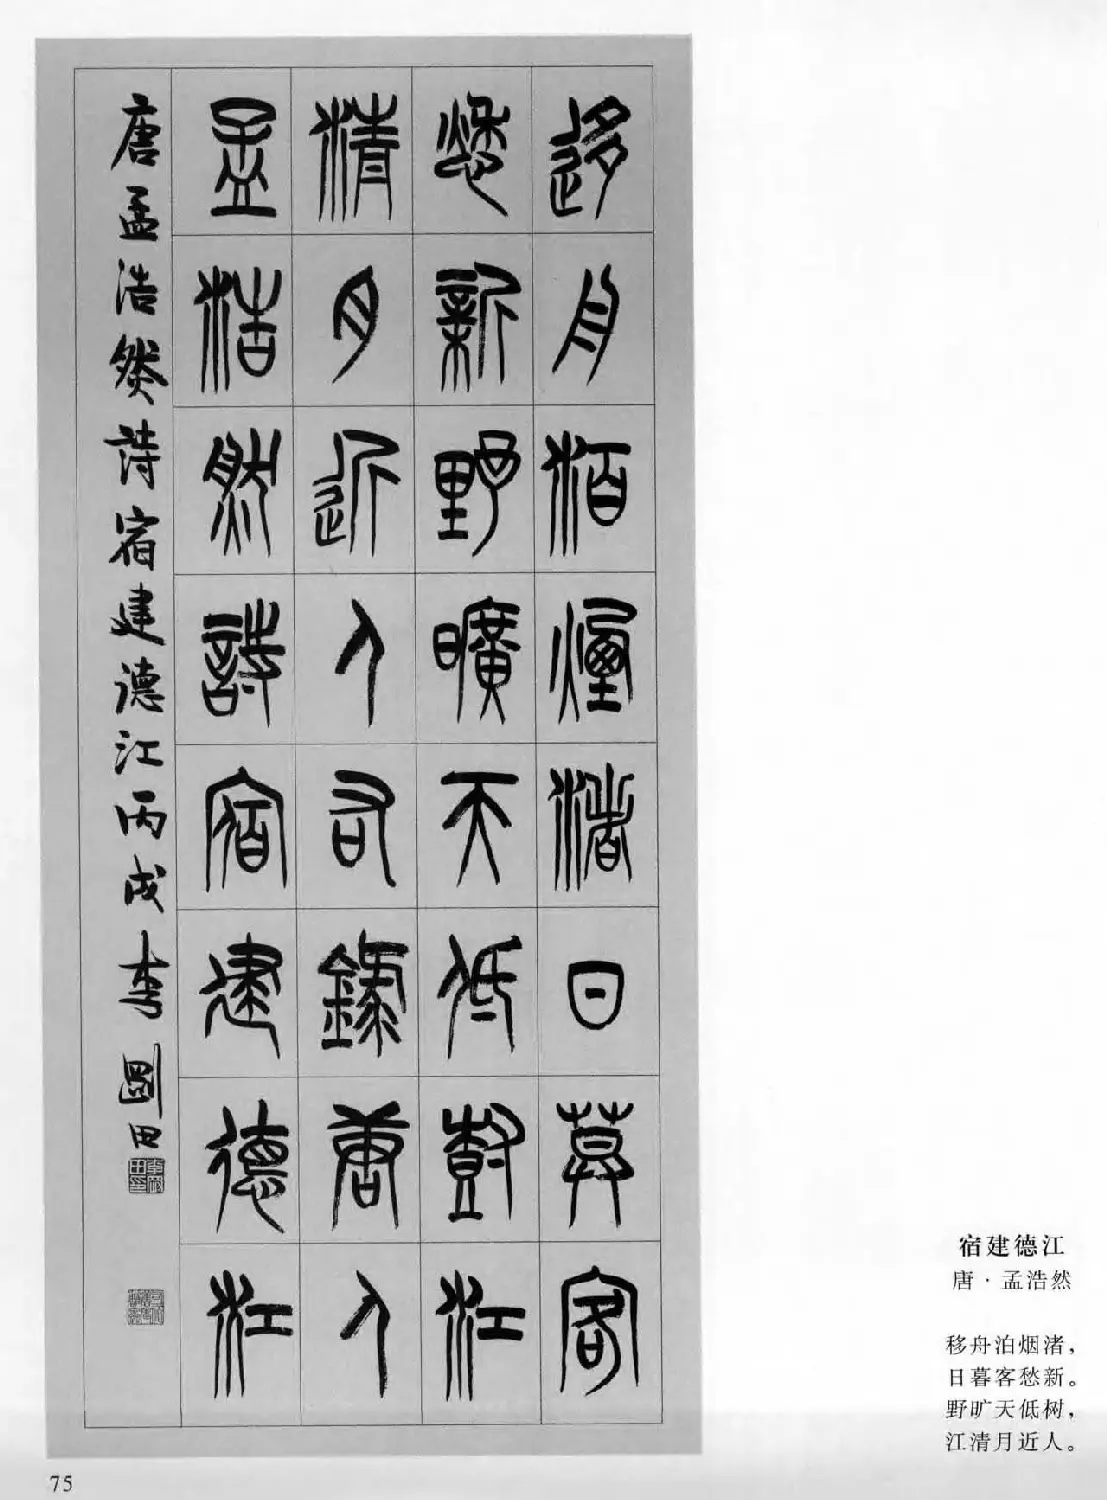 迻舟洦煙渚日莫客
愁新野曠天低尌江
清月近人右錄唐人
孟浩然詩宿建德江
唐孟浩然詩宿建德江丙戌李剛田
宿建德江
唐·孟浩然
移舟泊烟渚，
日暮客愁新。
野旷天低树，
江清月近人。
75